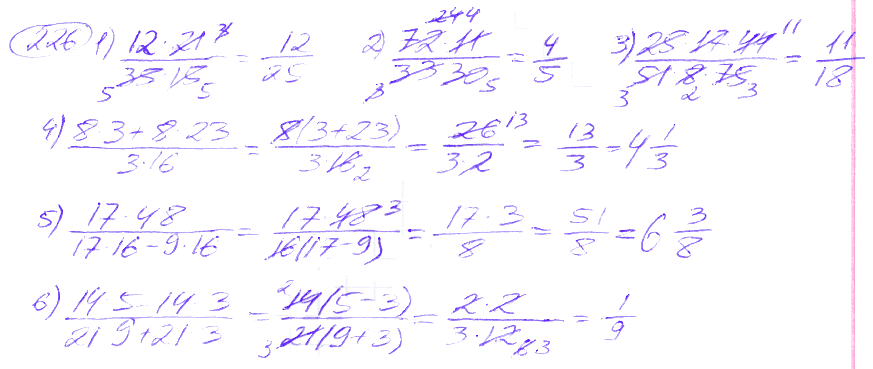 226 1) 12·21/35·15 = 12/25 2) 72·11/33·30 = 4/5 3) 25·17·44/51·8·75 = 11/18
4) 8·3+8·23/3·16 = 8(3+23)/3·16 = 26/3·2 = 13/3 = 4 1/3
5) 17·48/17·16-9·16 = 17·48/16(17-9) = 17·3/8 = 51/8 = 6 3/8
6) 14·5-14·3/21·9+21·3 = 14(5-3)/21(9+3) = 2·2/3·12 = 1/9